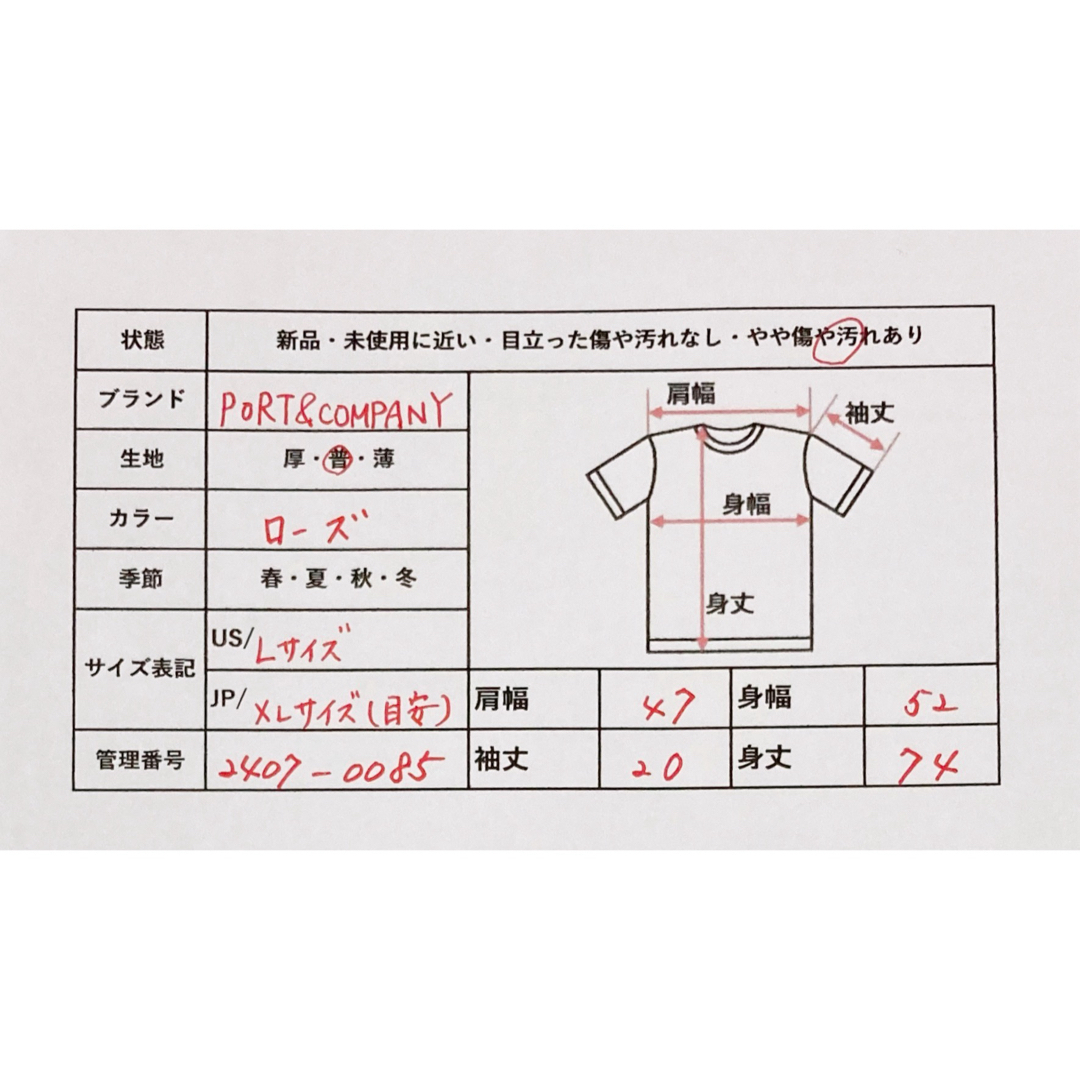 状態 新品・未使用に近い・目立った傷や汚れなし・やや傷や汚れあり
ブランド PORT&COMPANY
生地 厚・普・薄
カラー ローズ
季節 春・夏・秋・冬
サイズ表記 US/Lサイズ
JP/XLサイズ(目安)
管理番号 2407-0085
肩幅
袖丈
身幅
身丈
肩幅 47 身幅 52
袖丈 20 身丈 74